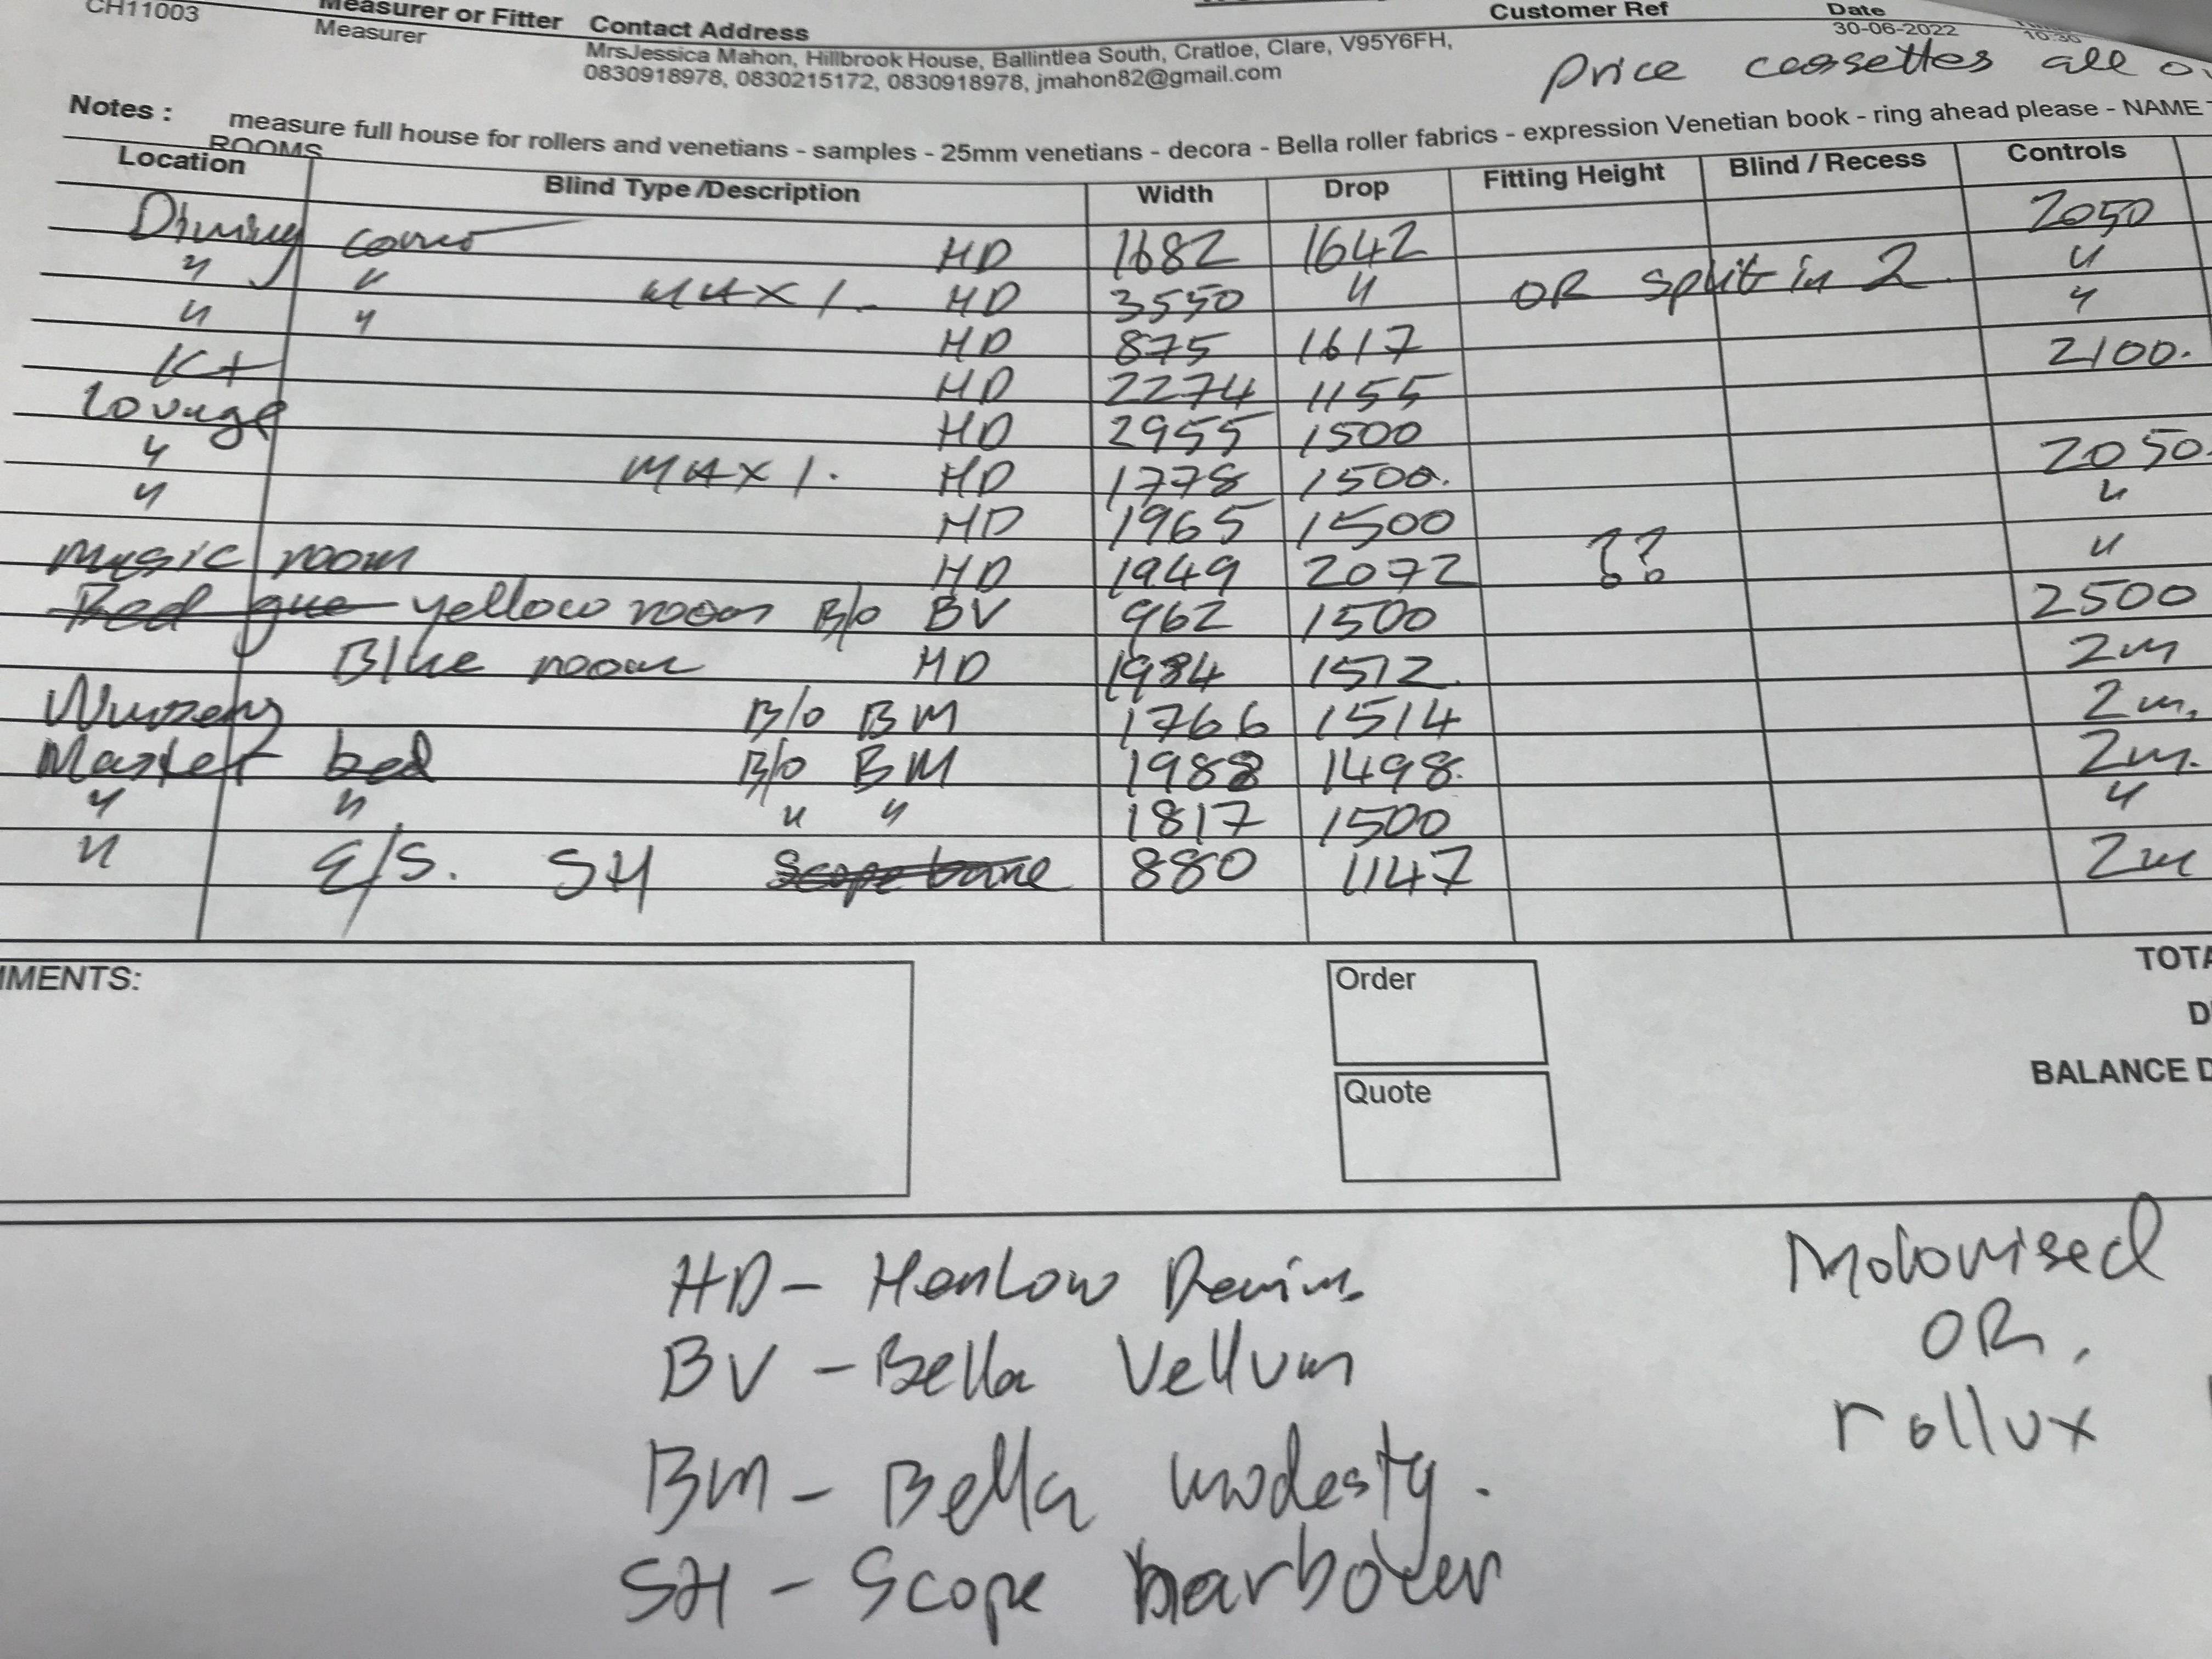 CH11003 Measurer or Fitter Contact Address Customer Ref Date
Measurer MrsJessica Mahon, Hillbrook House, Ballintlea South, Cratloe, Clare, V95Y6FH, 30-06-2022 10:30
0830918978, 0830215172, 0830918978, jmahon82@gmail.com
Price cassettes all
Notes : measure full house for rollers and venetians - samples - 25mm venetians - decora - Bella roller fabrics - expression Venetian book - ring ahead please - NAME
ROOMS
Location Blind Type /Description Width Drop Fitting Height Blind / Recess Controls
Dining HD 1682 1642 2050
" " MAX 1. HD 3550 " OR split in 2 "
" " HD 875 1617 "
Kt HD 2274 1155 2100.
Lounge HD 2955 1500
" MAX 1. HD 1778 1500. 2050.
" HD 1965 1500 "
Music room HD 1949 2072 ?? "
yellow room B/o BV 962 1500 2500
Blue room HD 1984 1512. 2m
B/o BM 1766 1514 2m.
Master bed B/o BM 1988 1498. 2m.
" " " " 1817 1500 "
" E/S. SH 880 1147 2m
MMENTS:
Order
Quote
TOTA
D
BALANCE D
HD - Henlow Denim
BV - Bella Vellum
BM - Bella modesty.
SH - Scope
Motorised
OR.
rollux